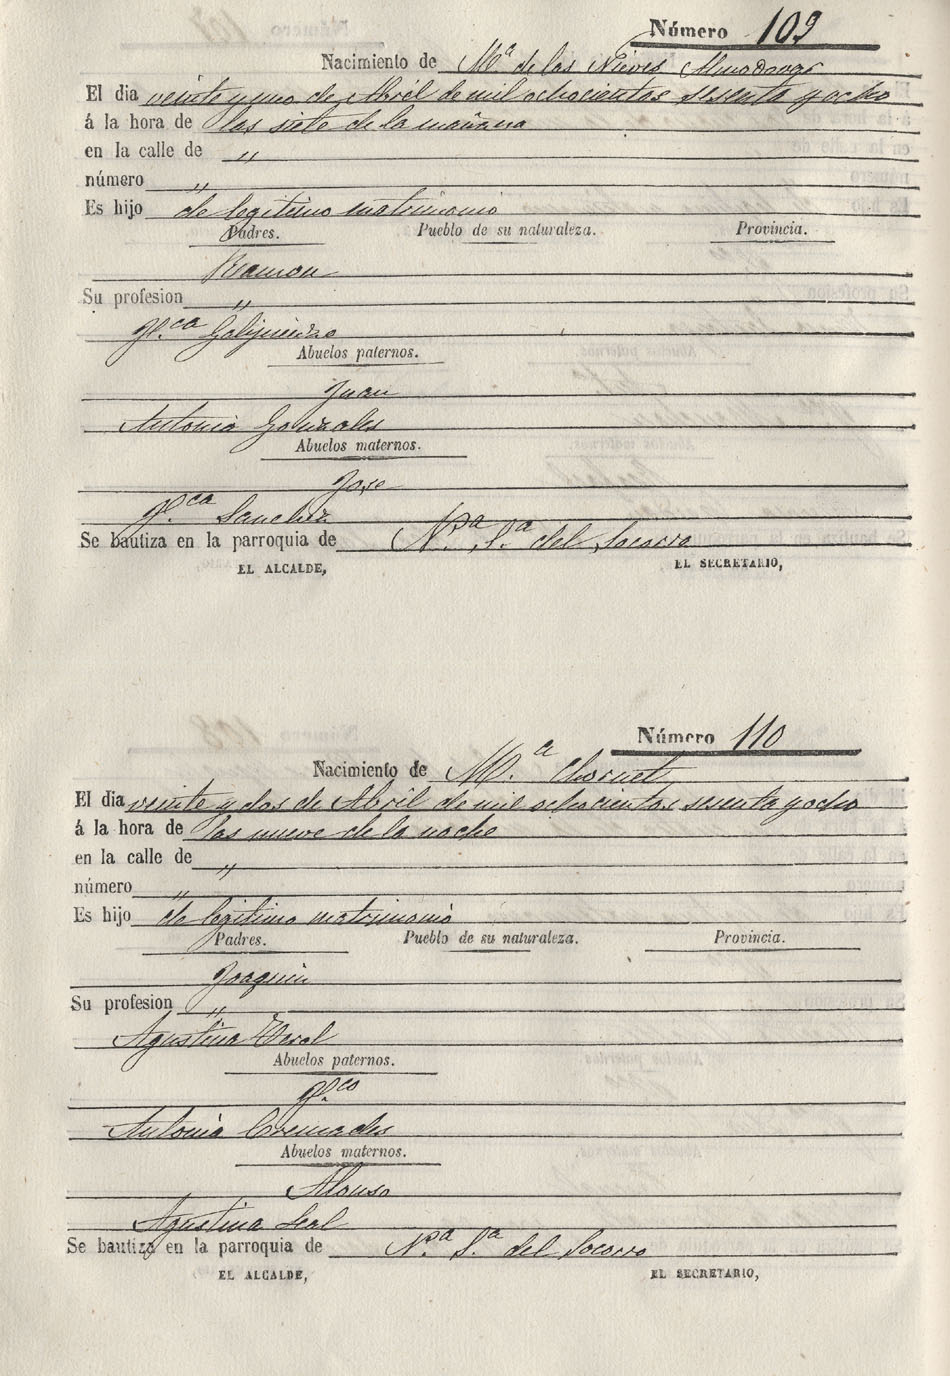 Número 109
Nacimiento de Mª de las Nieves Almodovar
El dia veinte y uno de Abril de mil ochocientos sesenta y ocho
á la hora de las siete de la mañana
en la calle de "
número "
Es hijo de legitimo matrimonio
Padres. Pueblo de su naturaleza. Provincia.
Ramon
Su profesion "
Fr.ca
Abuelos paternos.
Juan
Antonia Gonzales
Abuelos maternos.
Jose
Fr.ca Sanchez
Se bautiza en la parroquia de N.ra S.ra del Socorro
EL ALCALDE, EL SECRETARIO,
Número 110
Nacimiento de M.ª Chornet
El dia veinte y dos de Abril de mil ochocientos sesenta y ocho
á la hora de las nueve de la noche
en la calle de "
número "
Es hijo de legitimo matrimonio
Padres. Pueblo de su naturaleza. Provincia.
Joaquin
Su profesion "
Agustina Terol
Abuelos paternos.
Fr.co
Antonia Cremades
Abuelos maternos.
Alonso
Agustina Leal
Se bautiza en la parroquia de N.ra S.ra del Socorro
EL ALCALDE, EL SECRETARIO,